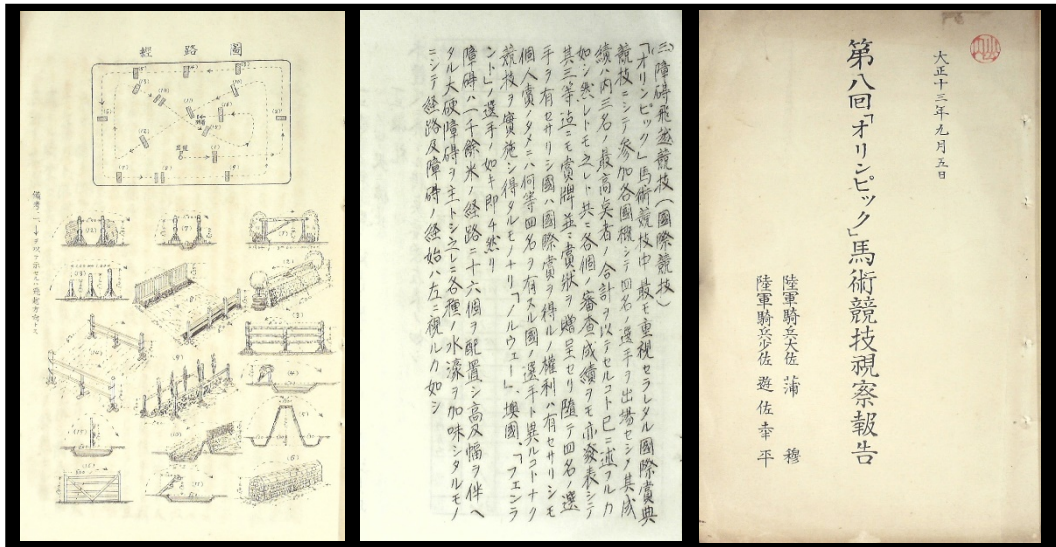 大正十三年九月五日
第八回「オリンピック」馬術競技視察報告
陸軍騎兵大佐 蒲 穆
陸軍騎兵少佐 遊佐幸平
三、障碍飛越競技(國際競技)
「オリンピック」馬術競技中 最モ重視セラレタル國際賞典
競技ニシテ参加各國概シテ四名ノ選手ヲ出場セシメ其成
績ハ内三名ノ最高点者ノ合計ヲ以テセルコト已ニ述フルカ
如シ然レトモ之レト共ニ各個ノ審査成績ヲモ亦發表シテ
其三等迄ニモ賞牌並ニ賞状ヲ贈呈セリ 随テ四名ノ選
手ヲ有セサリシ國ハ國際賞ヲ得ルノ權利ハ有セサリシモ
個人賞ノタメニハ何等四名ヲ有スル國ノ選手ト異ルコトナク
競技ヲ實施シ得タルモノナリ「ノルウェー」墺國「フェンラ
ント」ノ選手ノ如キ即チ然リ
障碍ハ一千餘米ノ経路ニ十六個ヲ配置シ高及幅ヲ伴ヘ
タル大硬障碍ヲ主トシ之レニ各種ノ水濠ヲ加味シタルモノ
ニシテ経路及障碍ノ経始ハ左ニ視ルカ如シ
經路圖
備考 一、→ヲ以テ示セルハ飛越方向トス